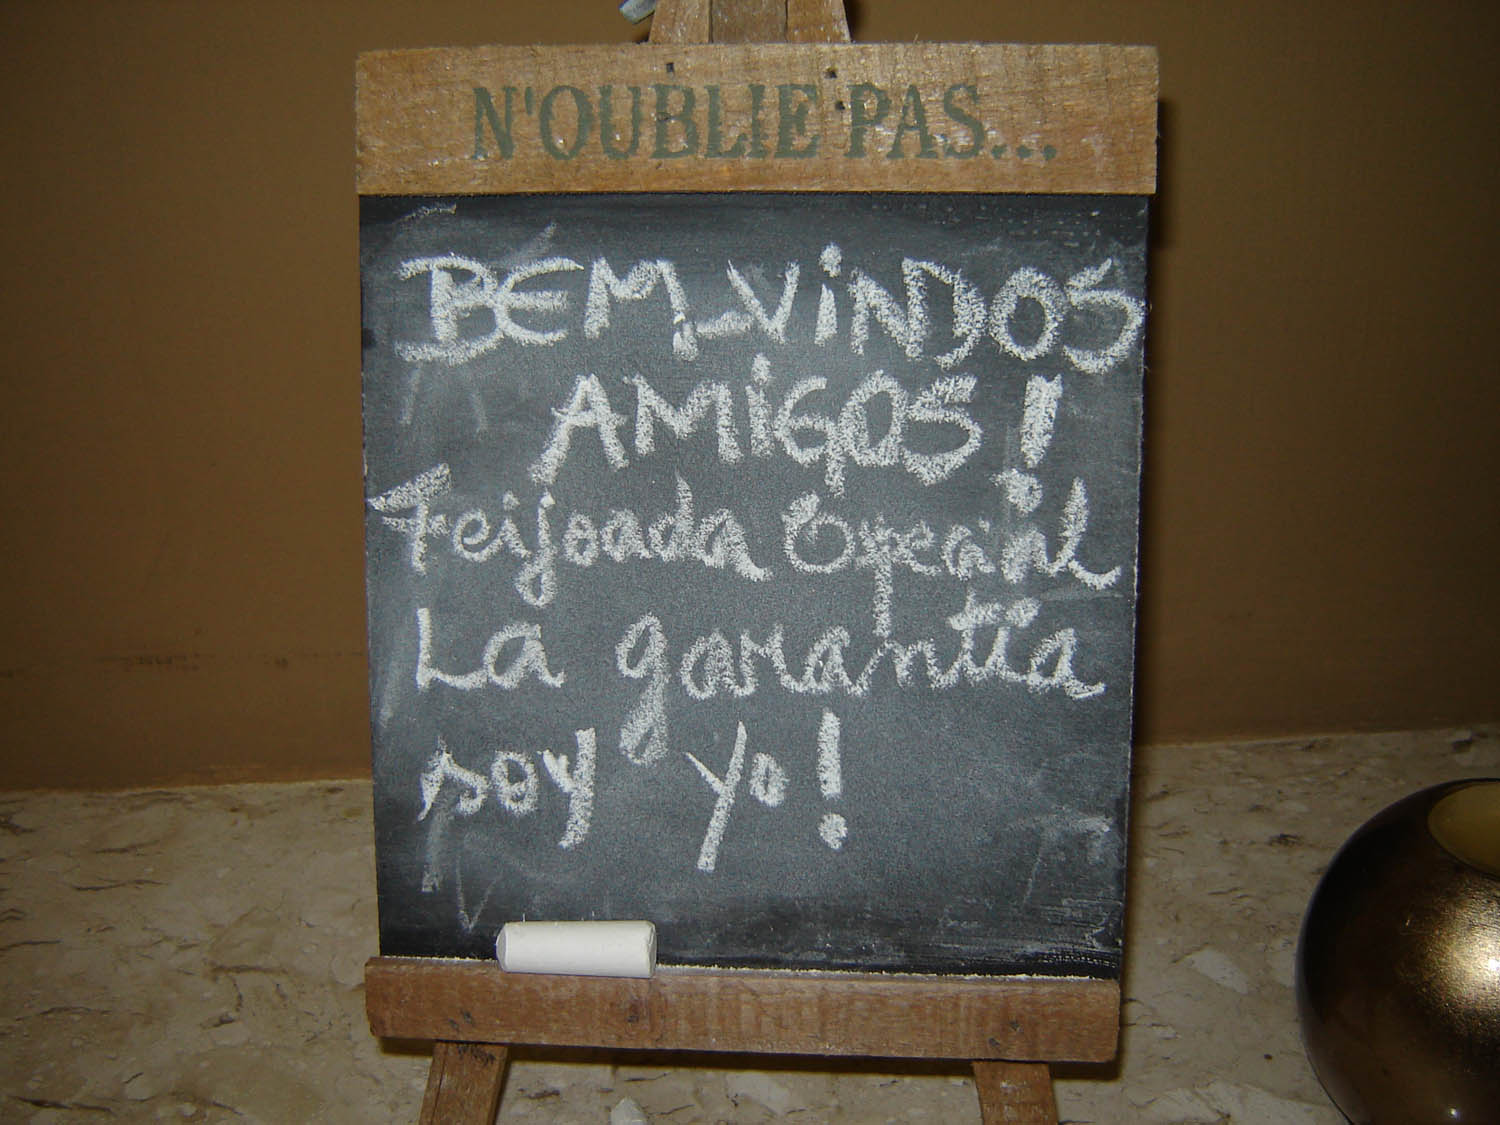 N'OUBLIE PAS...
BEM-VINDOS
AMIGOS!
Feijoada Especial
La garantia
soy yo!